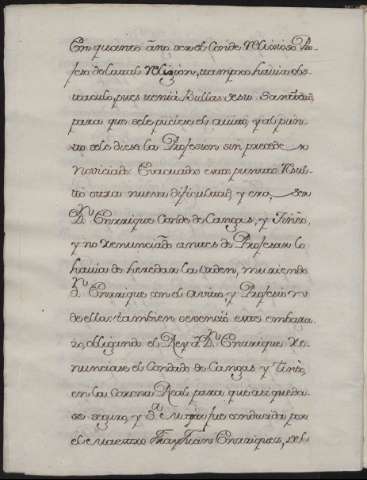 Con quanto á no ser el Conde Religioso Pro-
feso de la tal Religion, tampoco havia obs-
taculo, pues venia Bulla de su Santidad,
para que se le pidiese el avito, y al pun-
to se le diese la Profesion sin preceder
Noviciado. Evacuado este punto resul-
tò otra nueva dificultad, y era, ser
Dn. Enrrique Conde de Cangas, y Tineo,
y no renunciado antes de Profesar lo
havia de heredar la Orden, muriendo
Dn. Enrrique con el avito, y Profesion
de ella: tambien se venciò este embara-
zo, obligando el Rey a Dn. Enrrique Re-
nunciase el Condado de Cangas y Tineo,
en la Corona Real, para que asi queda-
se seguro, y Da. Mayor fue conducida por
el Maestro Fray Juan Enrriquez, del